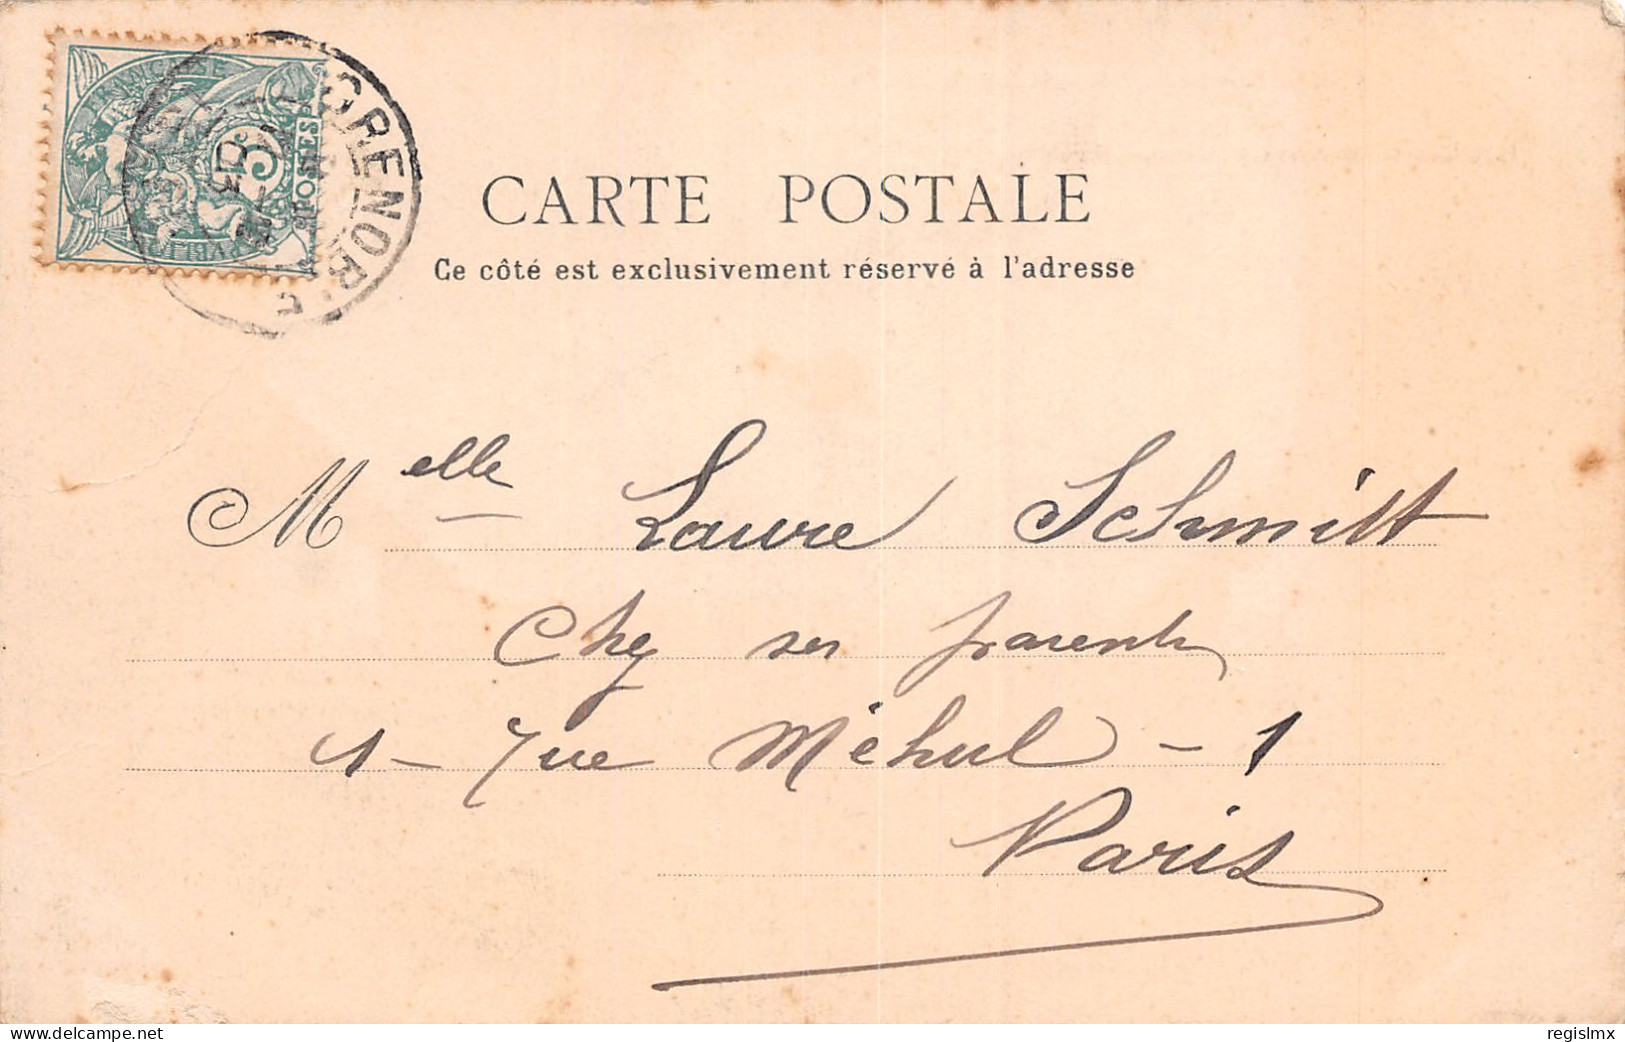 FRANÇAISE
5c
POSTES
GRENOB
CARTE POSTALE
Ce côté est exclusivement réservé à l'adresse
Melle Laure Schmitt
Chez ses parents
1 - rue Méhul - 1
Paris
delcampe.net
regislmx